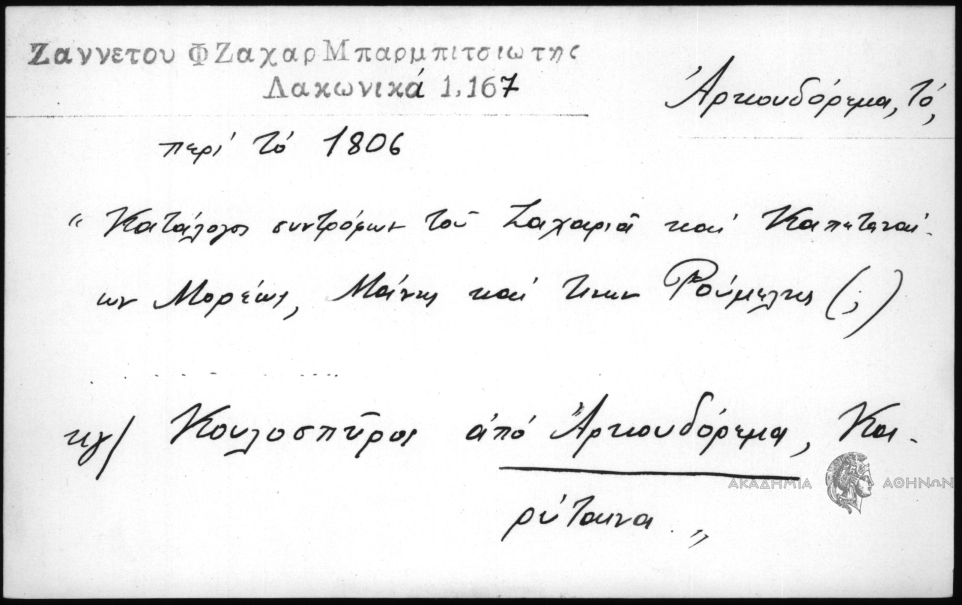 Ζαννετου Φ Ζαχαρ Μπαρμπιτσιωτης
Λακωνικά 1,167
Ἀρκουδόρεμα, τό,
περί τό 1806
"Κατάλογος συντρόφων τοῦ Ζαχαριᾶ καί Καπεταναί-
ων Μορέως, Μάνης καί τινων Ρούμελης (;)
κγ/ Κουλοσπῦρος ἀπό Ἀρκουδόρεμα, Κα-
ρύταινα."
ΑΚΑΔΗΜΙΑ ΑΘΗΝΩΝ